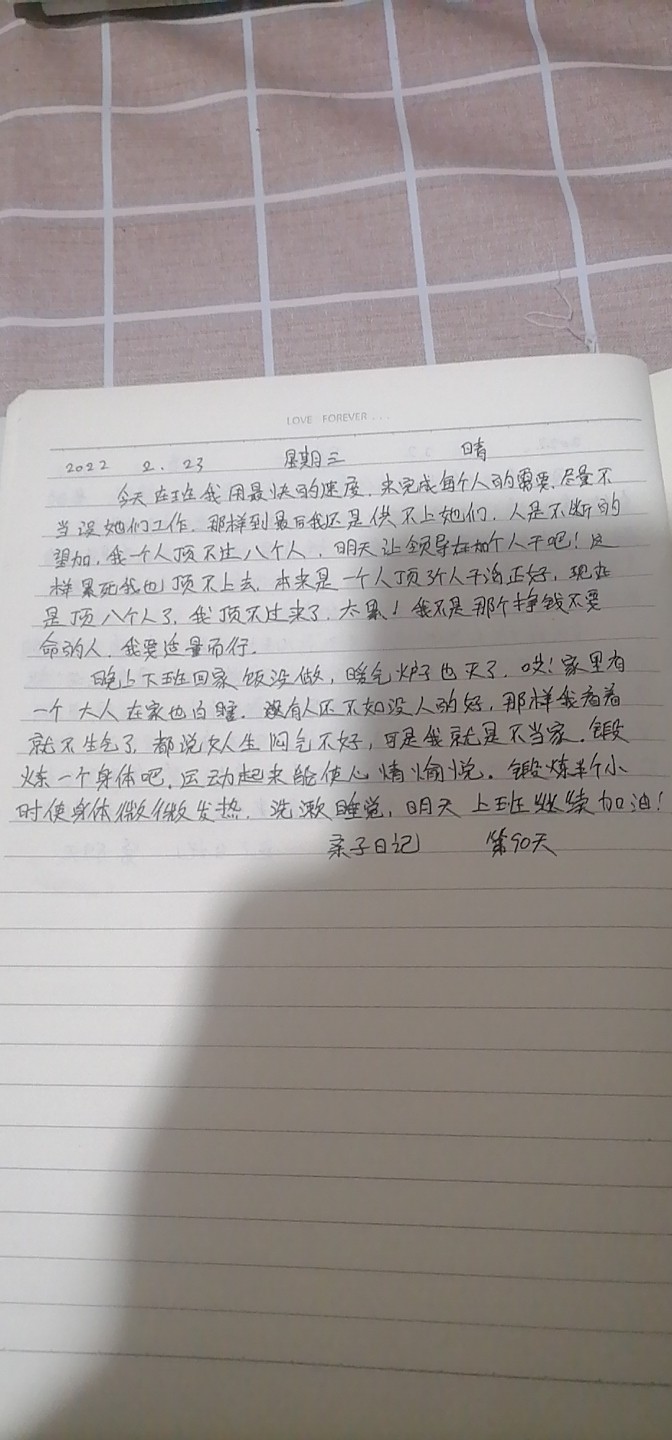 LOVE FOREVER...
2022 2.23 星期三 晴
今天在班我用最快的速度.来完成每个人的需要.尽量不
当误她们工作.那样到最后我还是供不上她们.人是不断的
加.我一个人顶不住八个人.明天让领导在加个人干吧!这
样累死我也顶不上去.本来是一个人顶3个人干活正好,现在
是顶八个人了.我顶不过来了.太累!我不是那个挣钱不要
命的人.我要适量而行.
晚上下班回家饭没做,暖气炉子也灭了.哎!家里有
一个大人在家也白瞎.没有人还不如没人的好,那样我看着
就不生气了.都说人生闷气不好,可是我就是不当家.锻
炼一个身体吧.运动起来能使心情愉悦.锻炼半个小
时使身体微微发热.洗漱睡觉,明天上班继续加油!
亲子日记 第90天